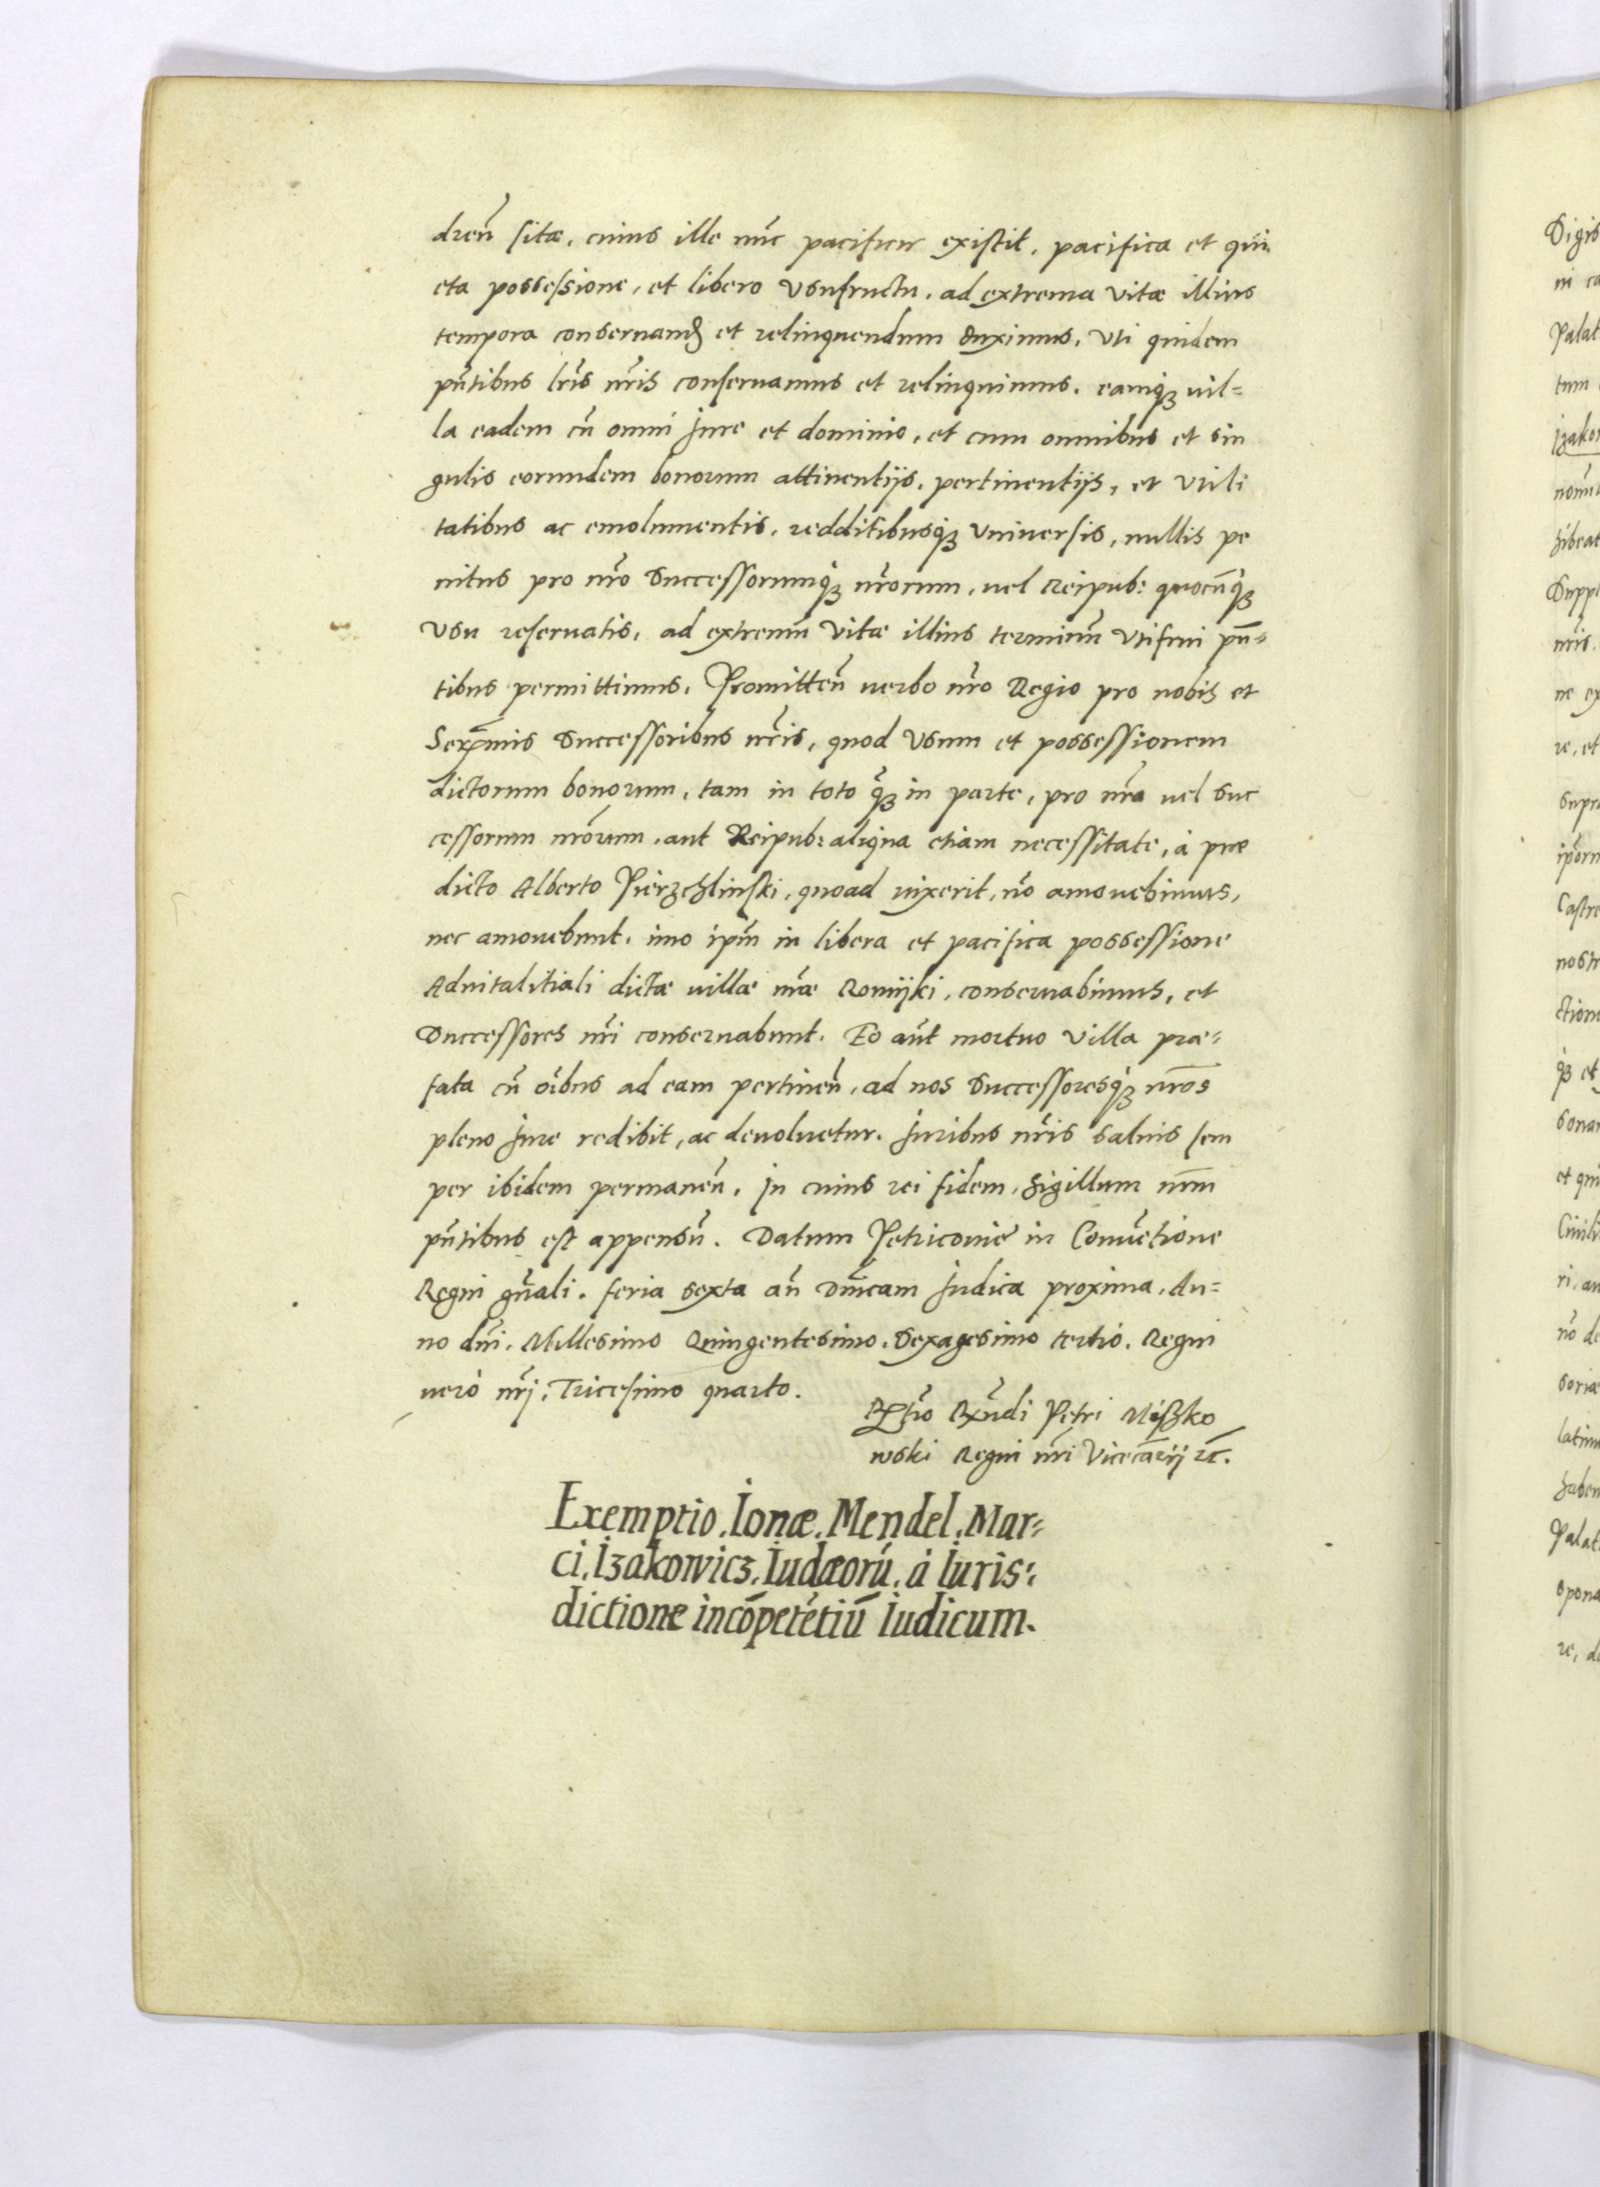 dreñ sitæ, cuius ille nũc pacificus existit, pacifica et qui
eta possessione, et libero vsufructu, ad extrema vitæ illius
tempora conseruand et relinquendum duximus, vti quidem
pñtibus lr̃is nr̃is conseruamus et relinquimus. eamq̃ʒ vil=
la eadem cũ omni Jure et dominio, et cum omnibus et sin
gulis eorundem bonorum attinentijs, pertinentijs, et vtili
tatibus ac emolumentis, redditibusq̃ʒ vniuersis, nullis pe
nitus pro nr̃o Successorumq̃ʒ nr̃orum, vel Reipub: quocũq̃ʒ
vsu reseruatis, ad extremũ vitæ illius terminũ vtifrui pñ=
tibus permittimus. Promitteñ verbo nr̃o Regio pro nobis et
Serẽmis Successoribus nr̃is, quod vsum et possessionem
dictorum bonorum, tam in toto q̃ʒ in parte, pro nr̃a vel Suc
cessorum nr̃orum, aut Reipub: aliqua etiam necessitate, à præ
dicto Alberto Pierzchlinski, quoad vixerit, nõ amouebimus,
nec amouebunt. imo ip̃m in libera et pacifica possessione
Aduitalitiali dictæ villæ nr̃æ Romijki, conseruabimus, et
Successores nr̃i conseruabunt. Eo aũt mortuo villa præ=
fata cũ oĩbus ad eam pertineñ, ad nos Successoresq̃ʒ nr̃os
pleno Jure redibit, ac deuoluetur. Juribus nr̃is saluis sem
per ibidem permaneñ. In cuius rei fidem, Sigillum nr̃m
pñtibus est appensũ. Datum Petricouiæ in Conuẽtione
Regni gñali. feria sexta añ Dñicam Judica proxima. An=
no dñi. Millesimo Quingentesimo. Sexagesimo tertio. Regni
verò nr̃j. Tricesimo quarto.
Rl̃tio Rx̃ndi Petri Miszko
wski Regni nr̃i Vicecãrij etc̃.
Exemptio. Ionæ. Mendel. Mar=
ci. Izakowicz. Iudæorũ. à Iuris=
dictione incõpetẽtiũ Iudicum.